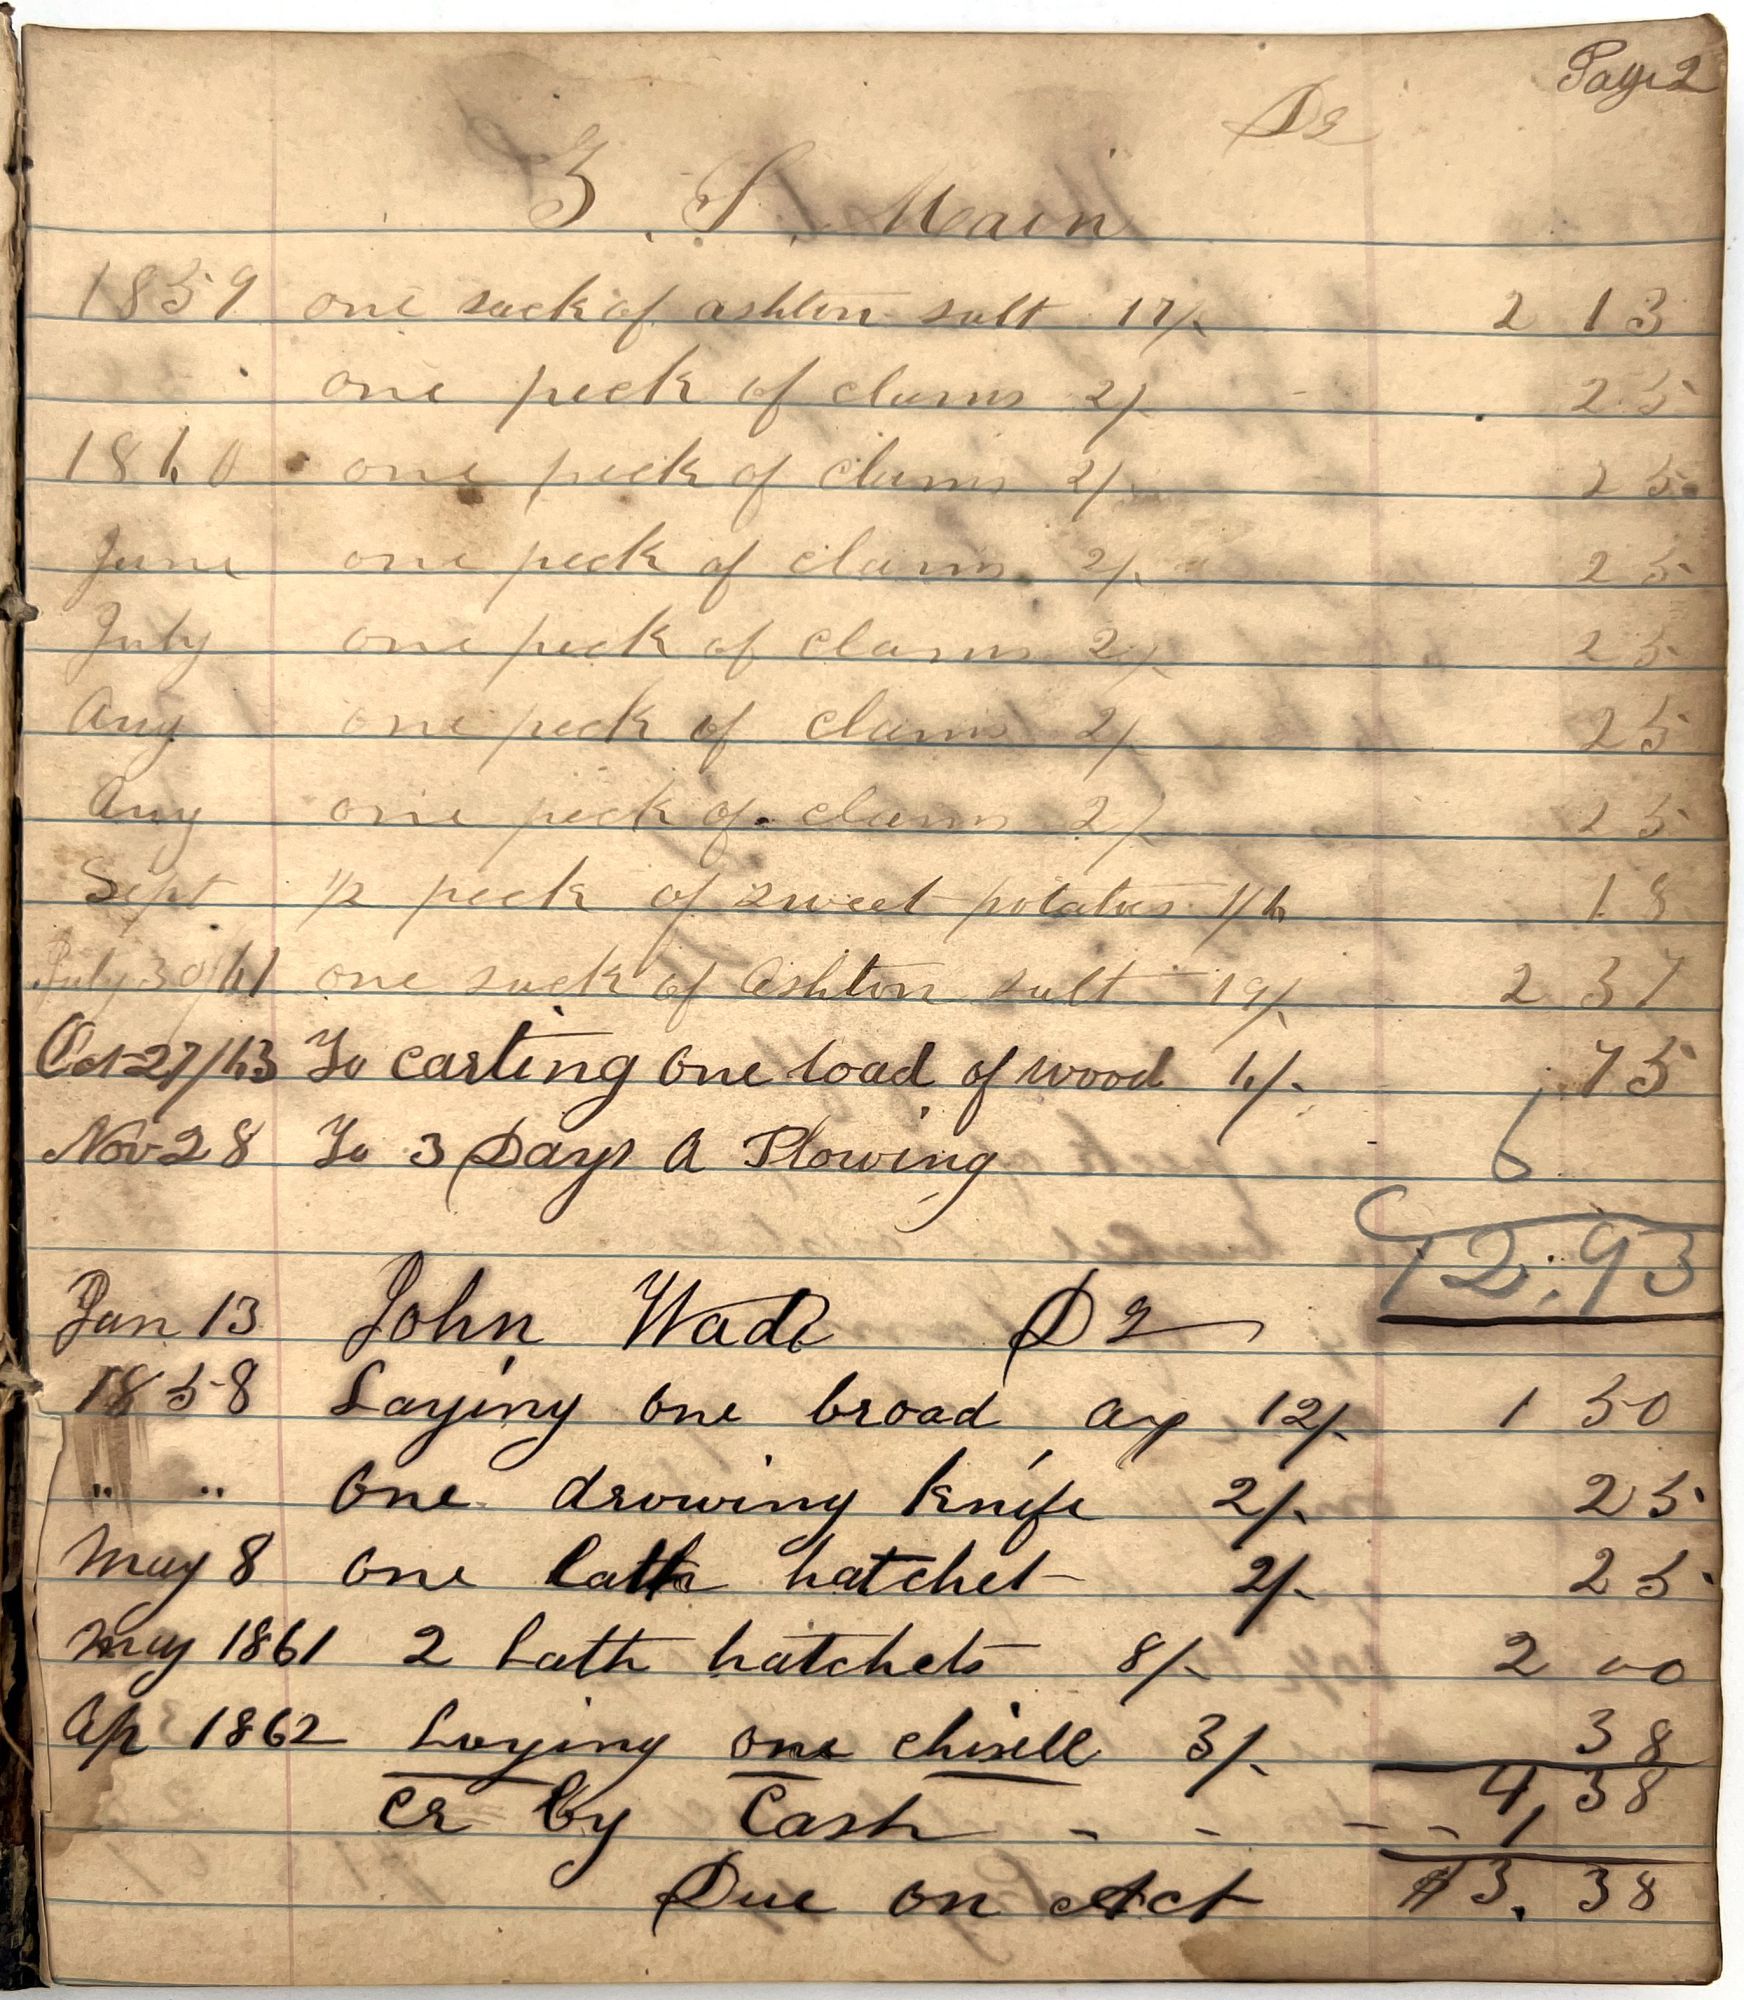 Page 2
Dr
G. S. Main
1859 one sack of ashton salt 17/- 2 13
one peck of clams 2/- 25
1860 one peck of clams 2/- 25
June one peck of clams 2/- 25
July one peck of clams 2/- 25
Aug one peck of clams 2/- 25
Aug one peck of clams 2/- 25
Sept 1/2 peck of sweet potatoes 1/6 18
July 30/61 one sack of Ashton salt 19/- 2 37
Oct 27/63 To carting one load of wood 6/- 75
Nov 28 To 3 Days A Plowing 6
12.93
Jan 13 John Wade Dr
1858 Laying one broad ax 12/- 1 50
" " one drowing knife 2/- 25
May 8 one lath hatchet 2/- 25
May 1861 2 Lath hatchets 8/- 2 00
Ap 1862 Laying one chisell 3/- 38
4,38
Cr by Cash - - - - 1
Due on Act $3.38